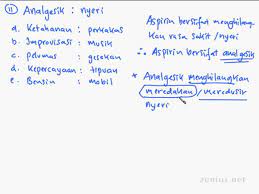 11 Analgesik : nyeri
a. Ketahanan : perkakas
b. Improvisasi : musik
c. pelumas : gesekan
d. Kepercayaan : tipuan
e. Bensin : mobil
Aspirin bersifat menghilang
kan rasa sakit / nyeri
∴ Aspirin bersifat analgesik
* Analgesik menghilangkan
meredakan / mereduksir
nyeri
zenius.net